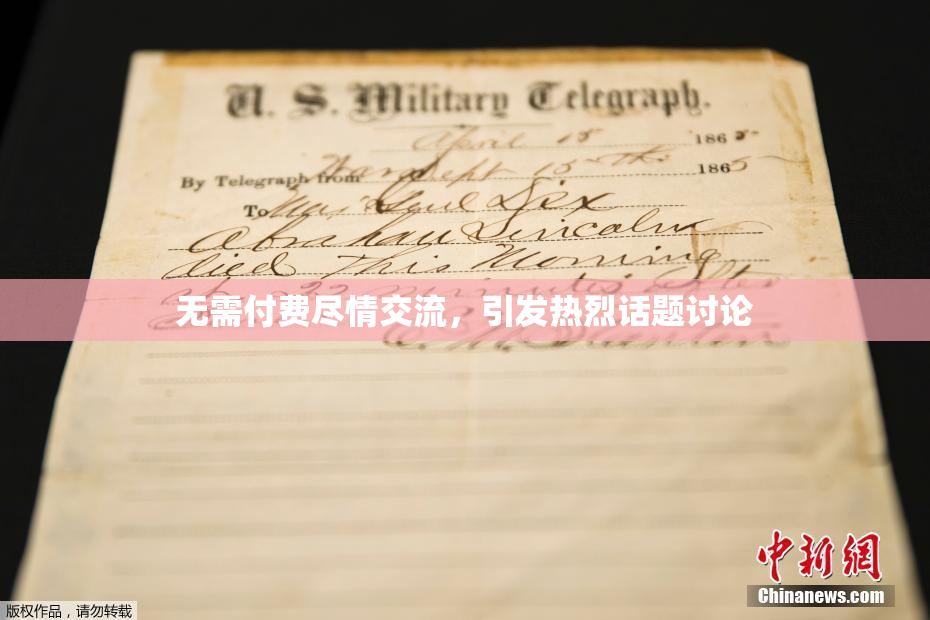 U. S. Military Telegraph.
April 15 1865
By Telegraph from War Dept 15th 1865
To Maj Genl Dix
Abraham Lincoln
died This Morning
at 22 minutes after
无需付费尽情交流，引发热烈话题讨论
中新网
Chinanews.com
版权作品，请勿转载